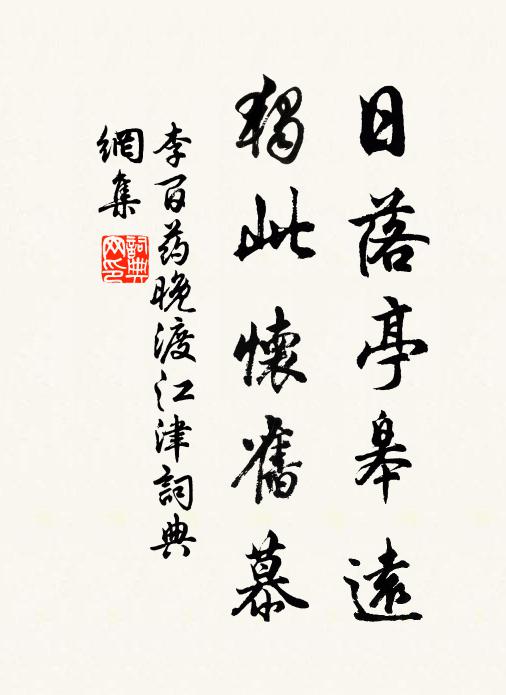 日落亭皋遠
獨此懷舊慕
李百药晚渡江津詞典
網集
詞典
网印